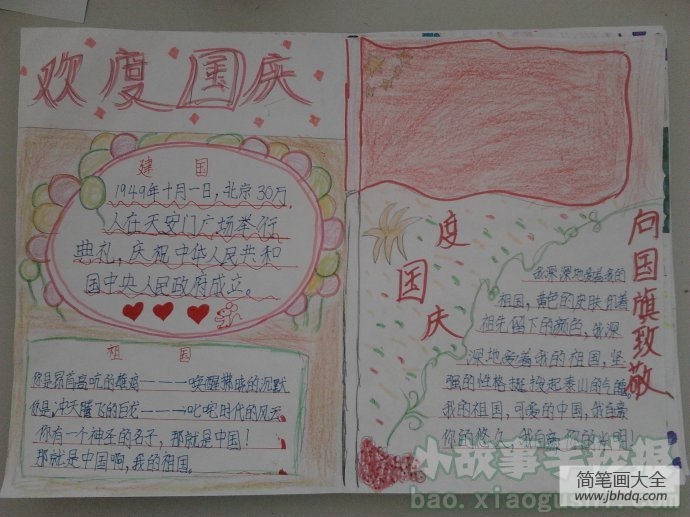 欢度国庆
建国
1949年十月一日，北京30万
人在天安门广场举行
典礼，庆祝中华人民共和
国中央人民政府成立。
祖国
你是昂首高吭的雄鸡————唤醒拂晓的沉默
你是冲天腾飞的白龙————叱咤时代的风云
你有一个神圣的名子，那就是中国！
那就是中国啊，我的祖国。
度
国
庆
向国旗致敬
我深深地爱着我的
祖国，黄色的皮肤
祖先留下的颜色，我深
深地爱着我的祖国，坚
强的性格挺起泰山的气
我的祖国，可爱的中国，我自豪
你的悠久，我自豪你的光明！
小故事手抄报
bao.xiaogushi.com
简笔画大全
www.jbhdq.com